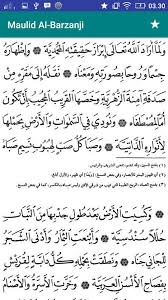 03.30
Maulid Al-Barzanji
وَلَمَّا أَرَادَ اللهُ تَعَالَى إِبْرَازَ حَقِيْقَتِهِ الْمُحَمَّدِيَّةِ ۞ وَإِظْهَارَهُ
جِسْمًا وَرُوْحًا بِصُوْرَتِهِ وَمَعْنَاهُ ۞ نَقَلَهُ إِلَى مَقَرِّهِ مِنْ
صَدَفَةِ آمِنَةَ الزُّهْرِيَّةِ ۞ وَخَصَّهَا الْقَرِيْبُ الْمُجِيْبُ بِأَنْ تَكُوْنَ
أُمًّا لِمُصْطَفَاهُ ۞ وَنُوْدِيَ فِي السَّمٰوَاتِ وَالْأَرْضِ بِحَمْلِهَا
لِأَنْوَارِهِ الذَّاتِيَّةِ ۞ وَصَبَا كُلُّ صَبٍّ لِهُبُوْبِ نَسِيْمِ صَبَاهُ
وَكُسِيَتِ الْأَرْضُ بَعْدَ طُوْلِ جَدْبِهَا مِنَ النَّبَاتِ
حُلَلًا سُنْدُسِيَّةً ۞ وَأَيْنَعَتِ الثِّمَارُ وَأَدْنَى الشَّجَرُ
لِلْجَانِيْ جَنَاهُ ۞ وَنَطَقَتْ بِحَمْلِهِ كُلُّ دَابَّةٍ لِقُرَيْشٍ
بِفِصَاحِ الْأَلْسُنِ الْعَرَبِيَّةِ ۞ وَخَرَّتِ الْأَسِرَّةُ وَالْأَصْنَامُ